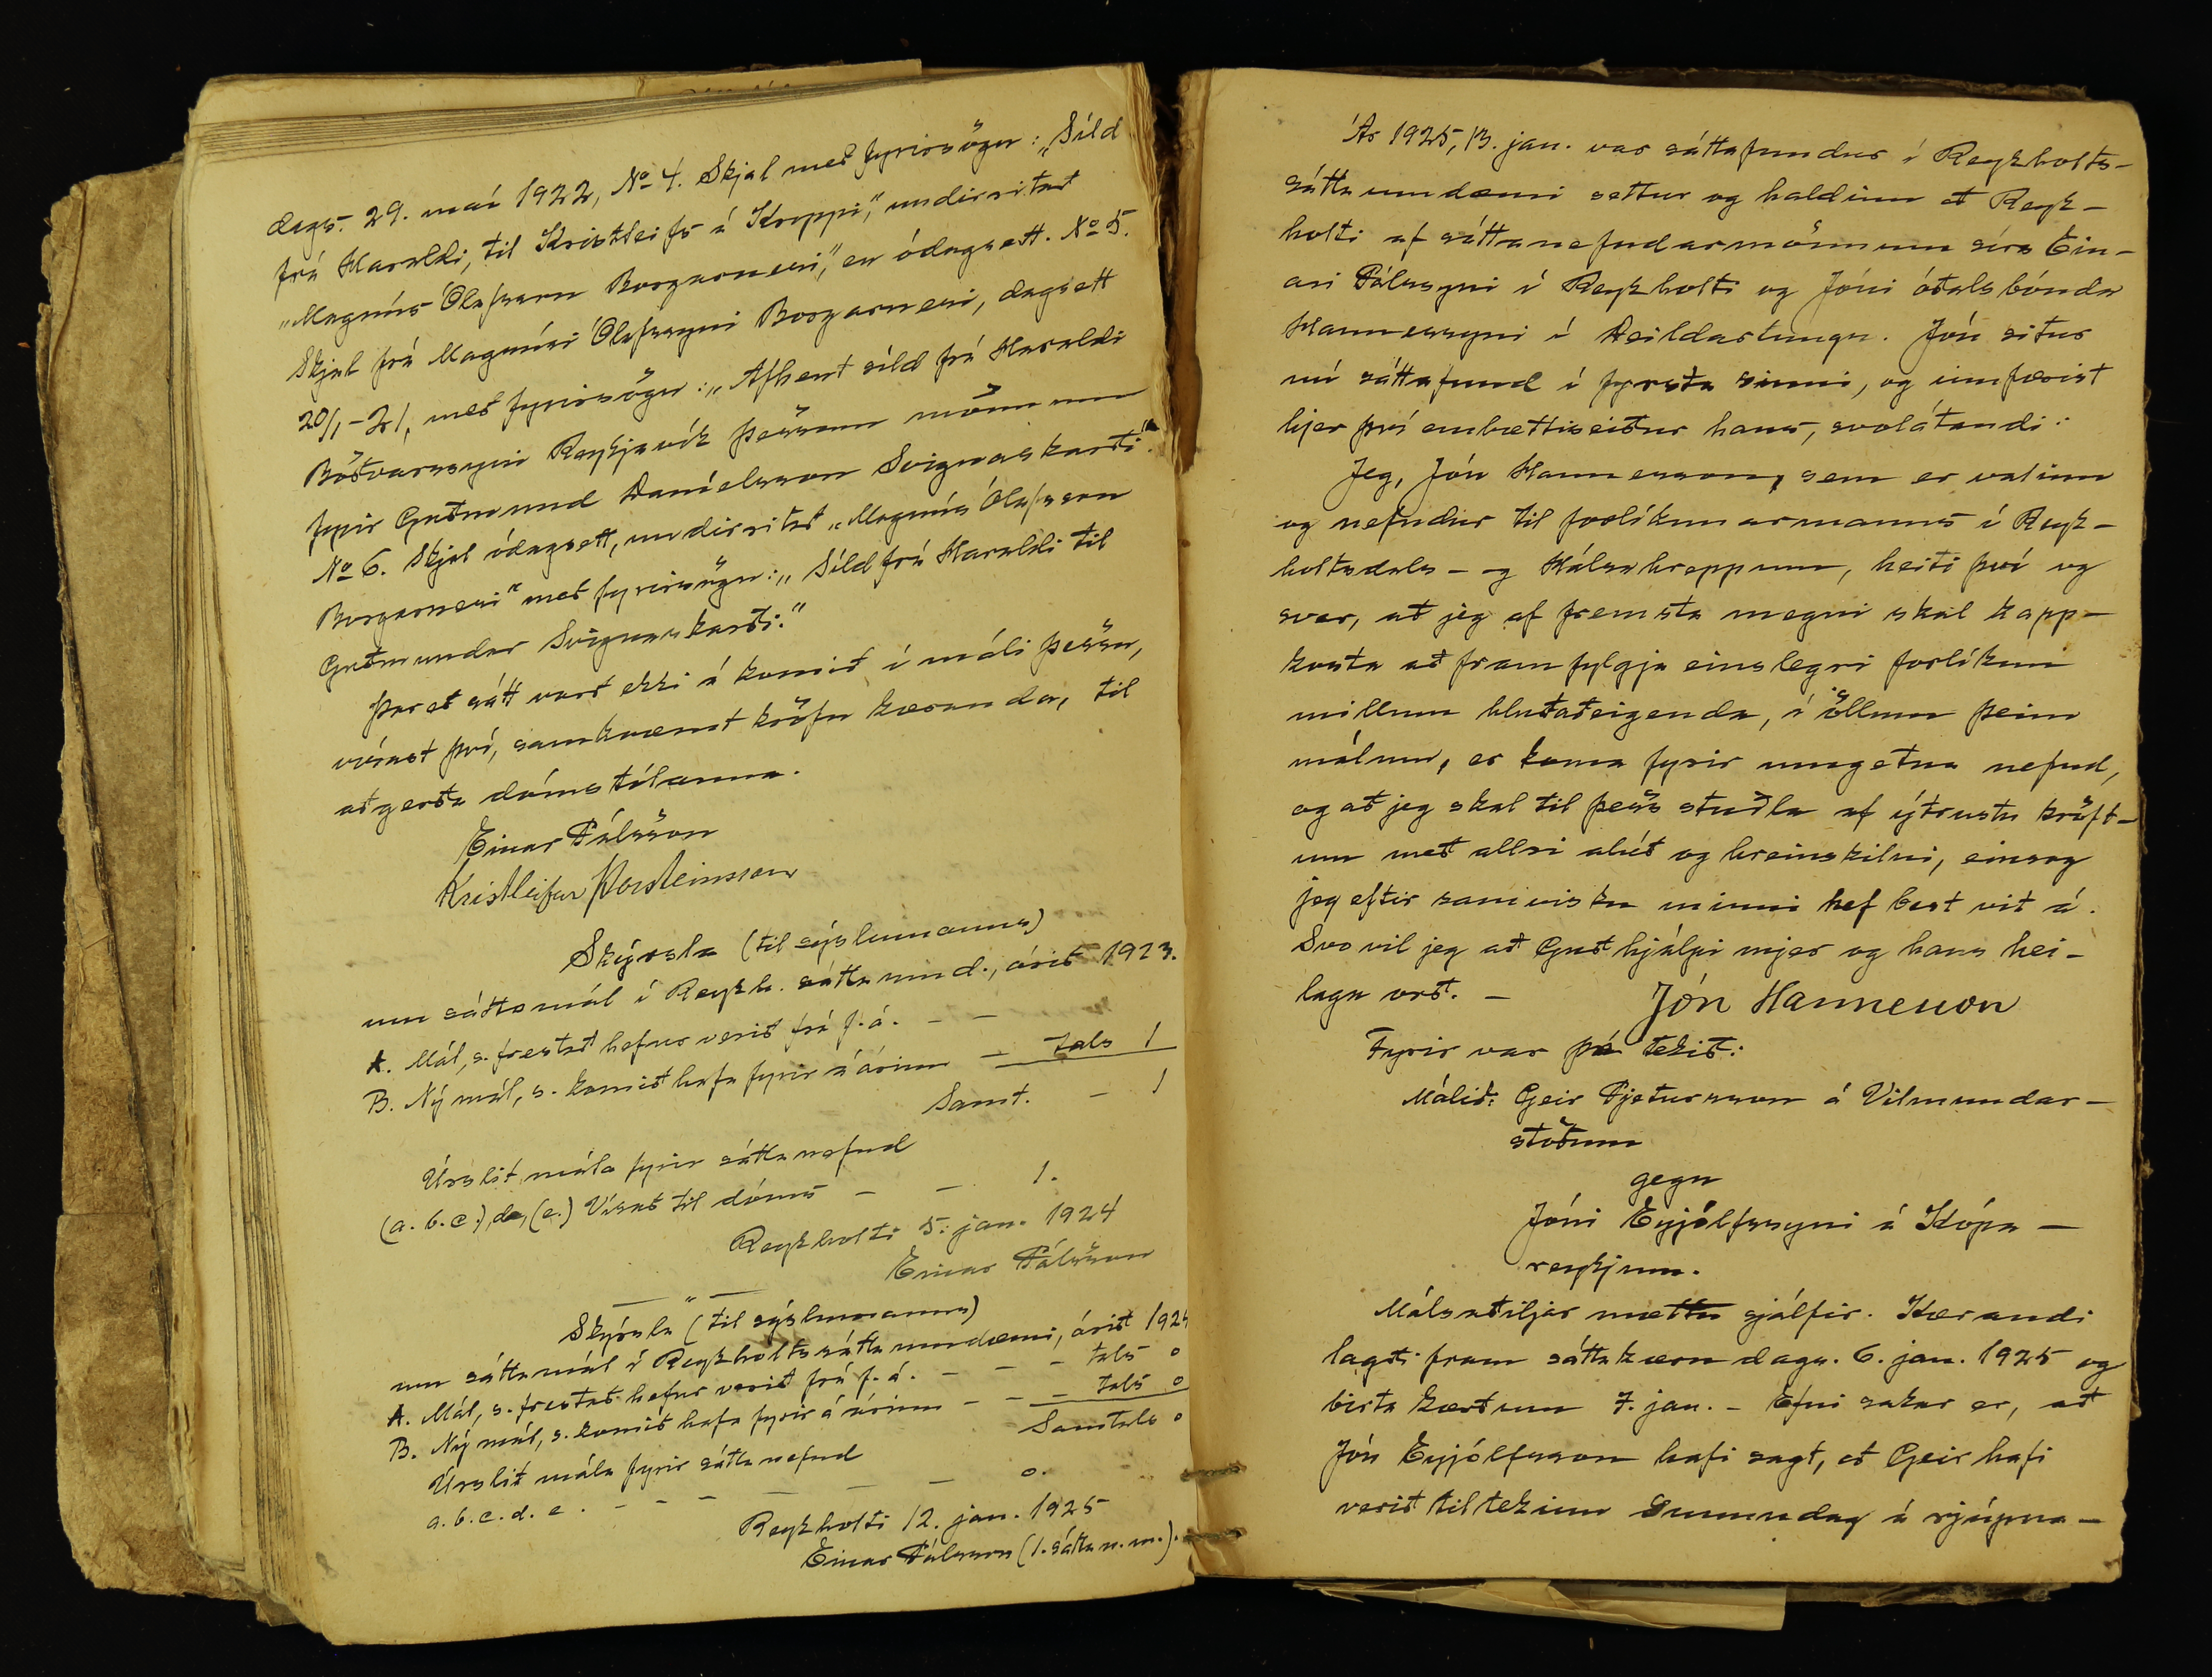 dags. 29. maí 1922, No 4. Skjal með fyrirsögn: „Síld
frá Haraldi, til Kristleifs á Kroppi,“ undirritað
„Magnús Ólafsson Borgarnesi,“ en ódagsett. No 5.
Skjal frá Magnúsi Ólafssyni Borgarnesi, dagsett
20/1-21, með fyrirsögn: „Afhent síld frá Haraldi
Böðvarssyni Reykjavík þessum mönnum
fyrir Guðmund Daníelsson Svignaskarði.“
No 6. Skjal ódagsett, undirritað „Magnús Ólafsson
Borgarnesi“ með fyrirsögn: „Síld frá Haraldi til
Guðmundar Svignaskarði.“
Þar eð sátt varð ekki á komið í máli þessu,
vísast því, samkvæmt kröfu kæranda, til
aðgerða dómstólanna.
Einar Pálsson
Kristleifur Þorsteinsson
Skýrsla (til sýslumanns)
um sáttamál í Reykh. sáttaumd., árið 1923.
A. Mál, s. frestað hefur verið frá f. á. - -
B. Ný mál, s. komið hafa fyrir á árinu - tals 1
Samt. - 1
Úrslit mála fyrir sáttanefnd
(a. b. c.), d, (e.) Vísað til dóms - - 1.
Reykholti 5. jan. 1924
Einar Pálsson
— „ —
Skýrsla (til sýslumanns)
um sáttamál í Reykholtssáttaumdæmi, árið 1924
A. Mál, s. frestað hefur verið frá f. á. - - - tals 0
B. Ný mál, s. komið hafa fyrir á árinu - - - tals 0
Samtals 0
Úrslit mála fyrir sáttanefnd
a. b. c. d. e. - - - - - - 0.
Reykholti 12. jan. 1925
Einar Pálsson (1. sátta n. m.).
Ár 1925, 13. jan. var sáttafundur í Reykholts-
sáttaumdæmi settur og haldinn að Reyk-
holti af sáttanefndarmönnum síra Ein-
ari Pálssyni í Reykholti og Jóni óðalsbónda
Hannessyni í Deildartungu. Jón situr
nú sáttafund í fyrsta sinni, og innfærist
hjer því embættiseiður hans, svolátandi:
Jeg, Jón Hannesson, sem er valinn
og nefndur til forlíkunarmanns í Reyk-
holtsdals- og Hálsahreppum, heiti því og
sver, að jeg af fremsta megni skal kapp-
kosta að framfylgja einslegri forlíkun
millum hlutaðeigenda, í öllum þeim
málum, er koma fyrir umgetna nefnd,
og að jeg skal til þess stuðla af ýtrustu kröft-
um með allri alúð og hreinskilni, einsog
jeg eftir samvisku minni hef best vit á.
Svo vil jeg að Guð hjálpi mjer og hans hei-
laga orð. - Jón Hannesson
Fyrir var þá tekið:
Málið: Geir Pjetursson á Vilmundar-
stöðum
gegn
Jóni Eyjólfssyni á Kópa-
reykjum.
Málsaðiljar mættu sjálfir. Kærandi
lagði fram sáttakæru dags. 6. jan. 1925 og
birta kærðum 7. jan. - Efni sakar er, að
Jón Eyjólfsson hafi sagt, að Geir hafi
verið tiltekinn sunnudag á rjúpna-